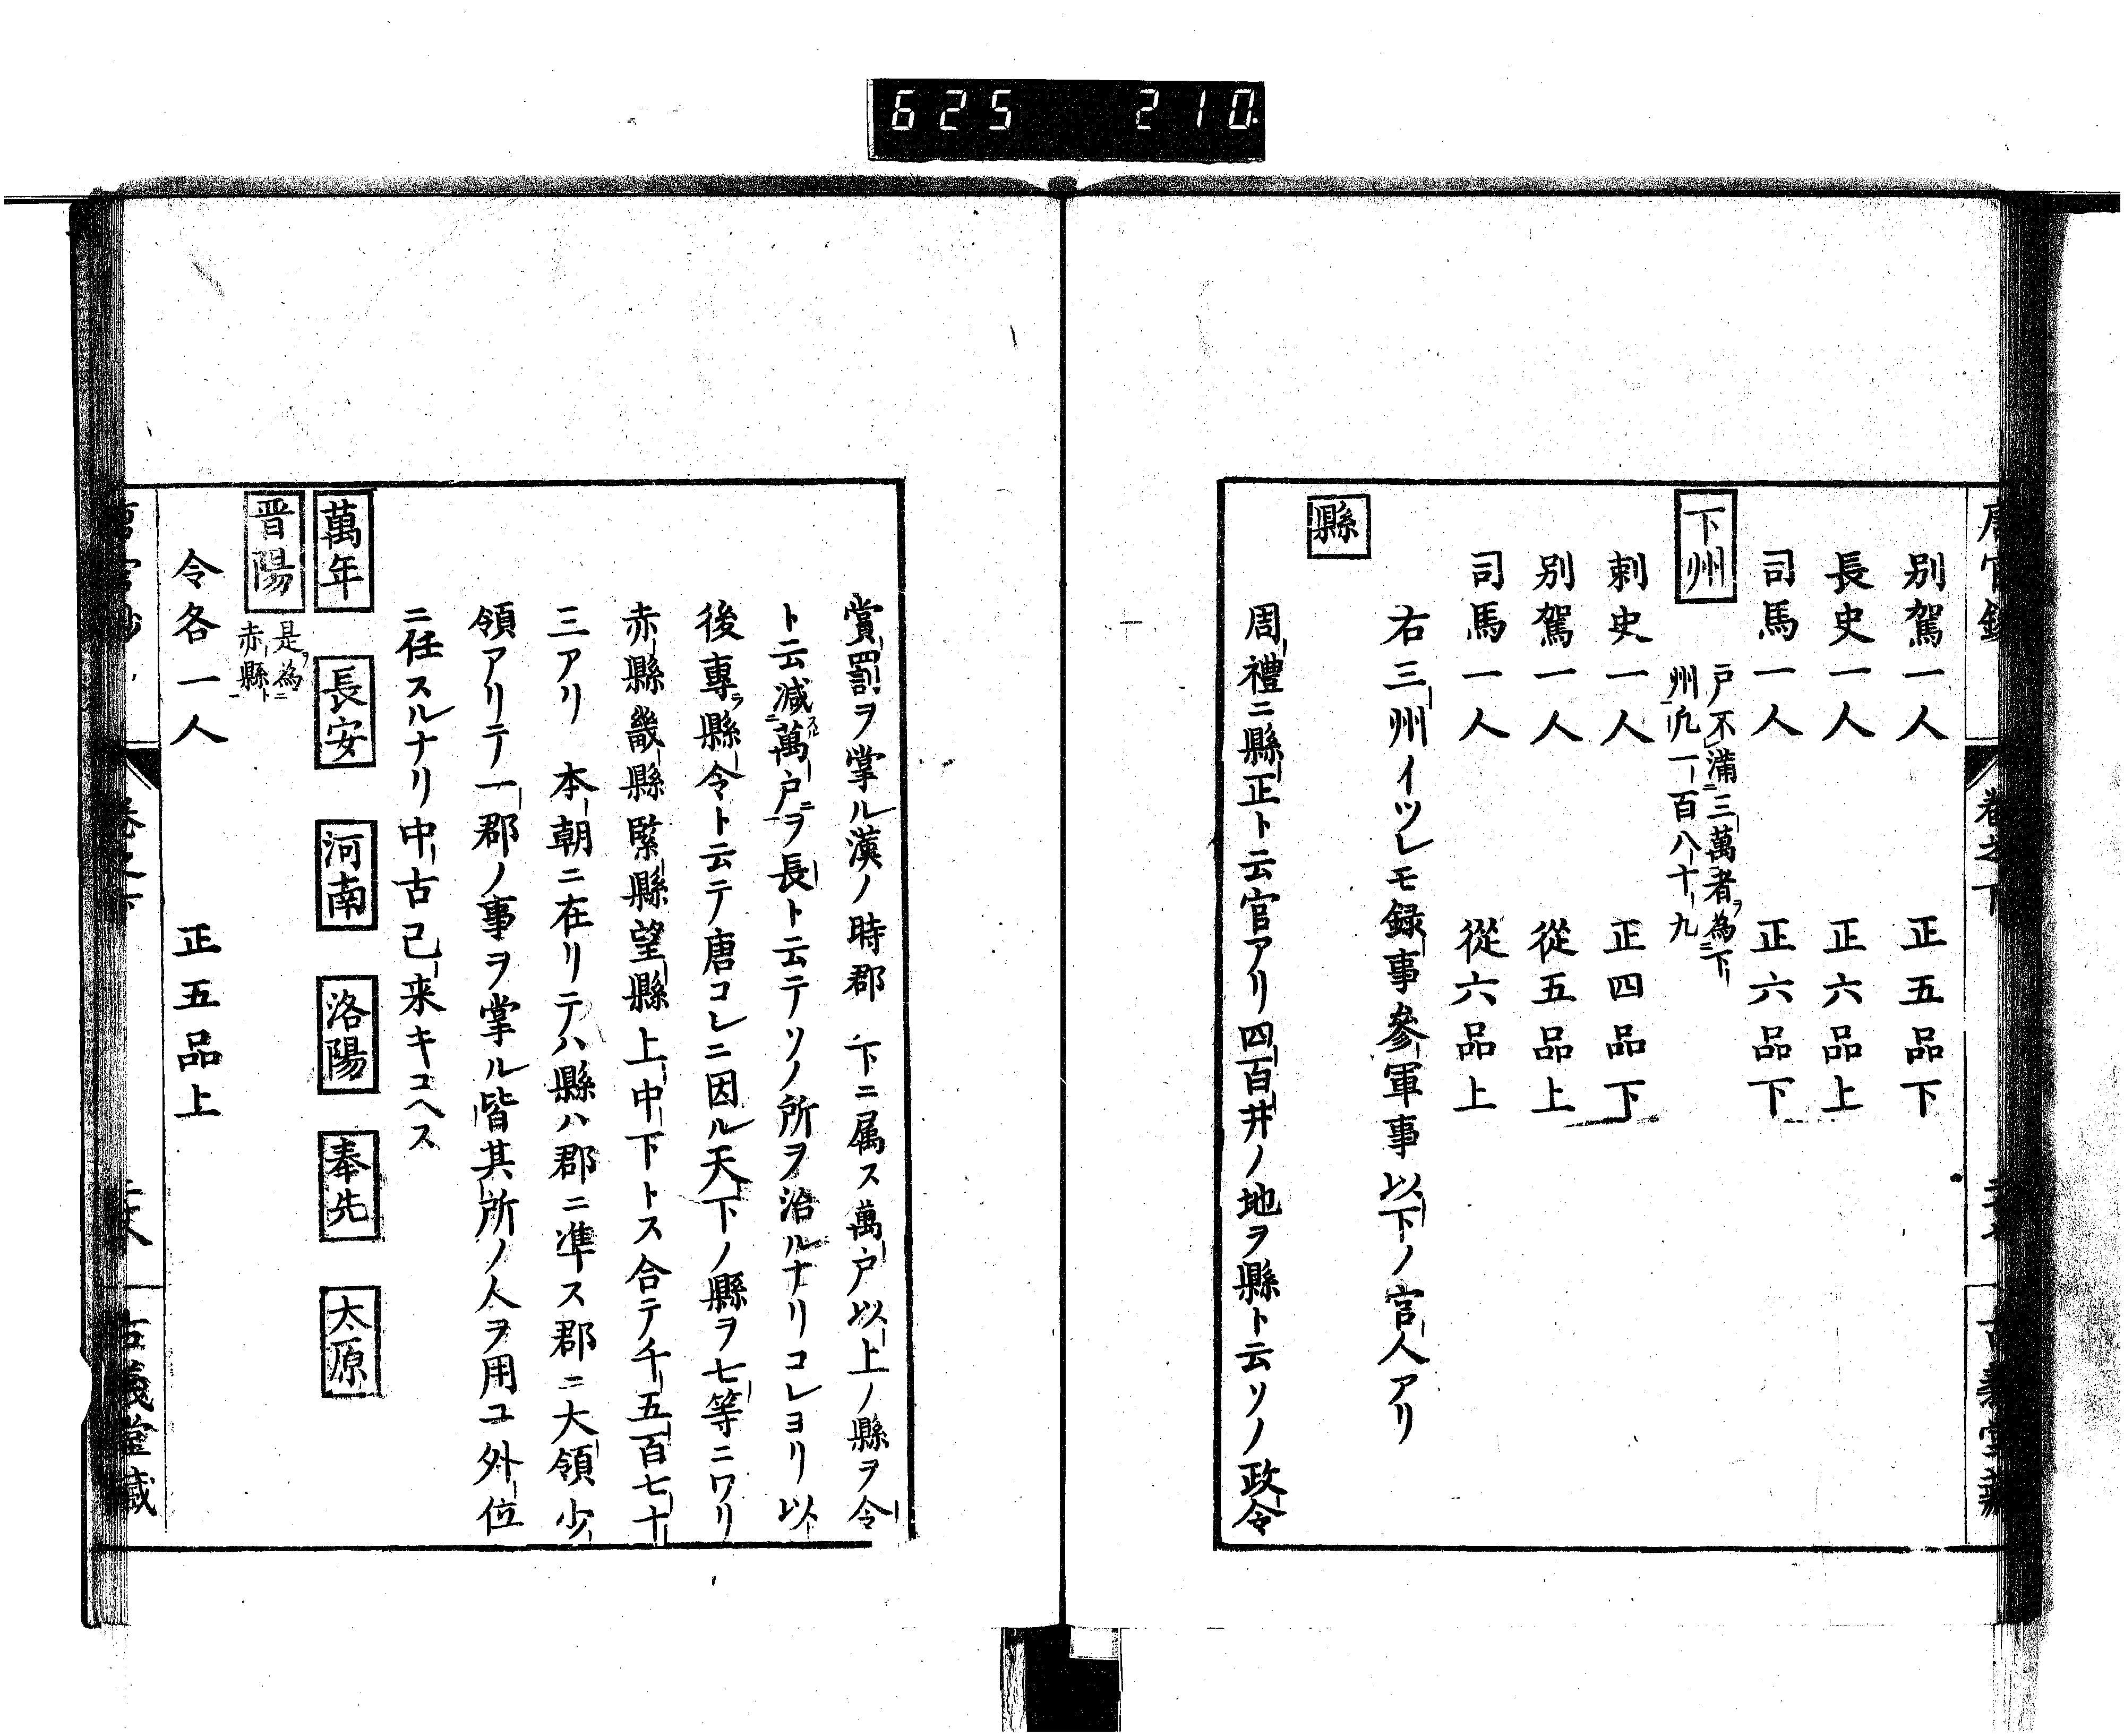 625 210
別駕一人 正五品下
長史一人 正六品上
司馬一人 正六品下
下州 戸不満三萬者ヲ為下
州凡一百八十九
刺史一人 正四品下
別駕一人 從五品上
司馬一人 從六品上
右三州イツレモ録事參軍事以下ノ官人アリ
縣
周禮ニ縣正ト云官アリ四百井ノ地ヲ縣ト云ソノ政令
賞罰ヲ掌ル漢ノ時郡下ニ属ス萬戸以上ノ縣ヲ令
ト云減萬戸ヲ長ト云テソノ所ヲ治ルナリコレヨリ以
後專ラ縣令ト云テ唐コレニ因ル天下ノ縣ヲ七等ニワリ
赤縣畿縣緊縣望縣上中下トス合テ千五百七十
三アリ 本朝ニ在リテハ縣ハ郡ニ準ス郡ニ大領少
領アリテ一郡ノ事ヲ掌ル皆其所ノ人ヲ用ユ外位
ニ任スルナリ中古已来キコヘス
萬年 長安 河南 洛陽 奉先 太原
晋陽 是ヲ為
赤縣ト
令各一人 正五品上
古義堂藏